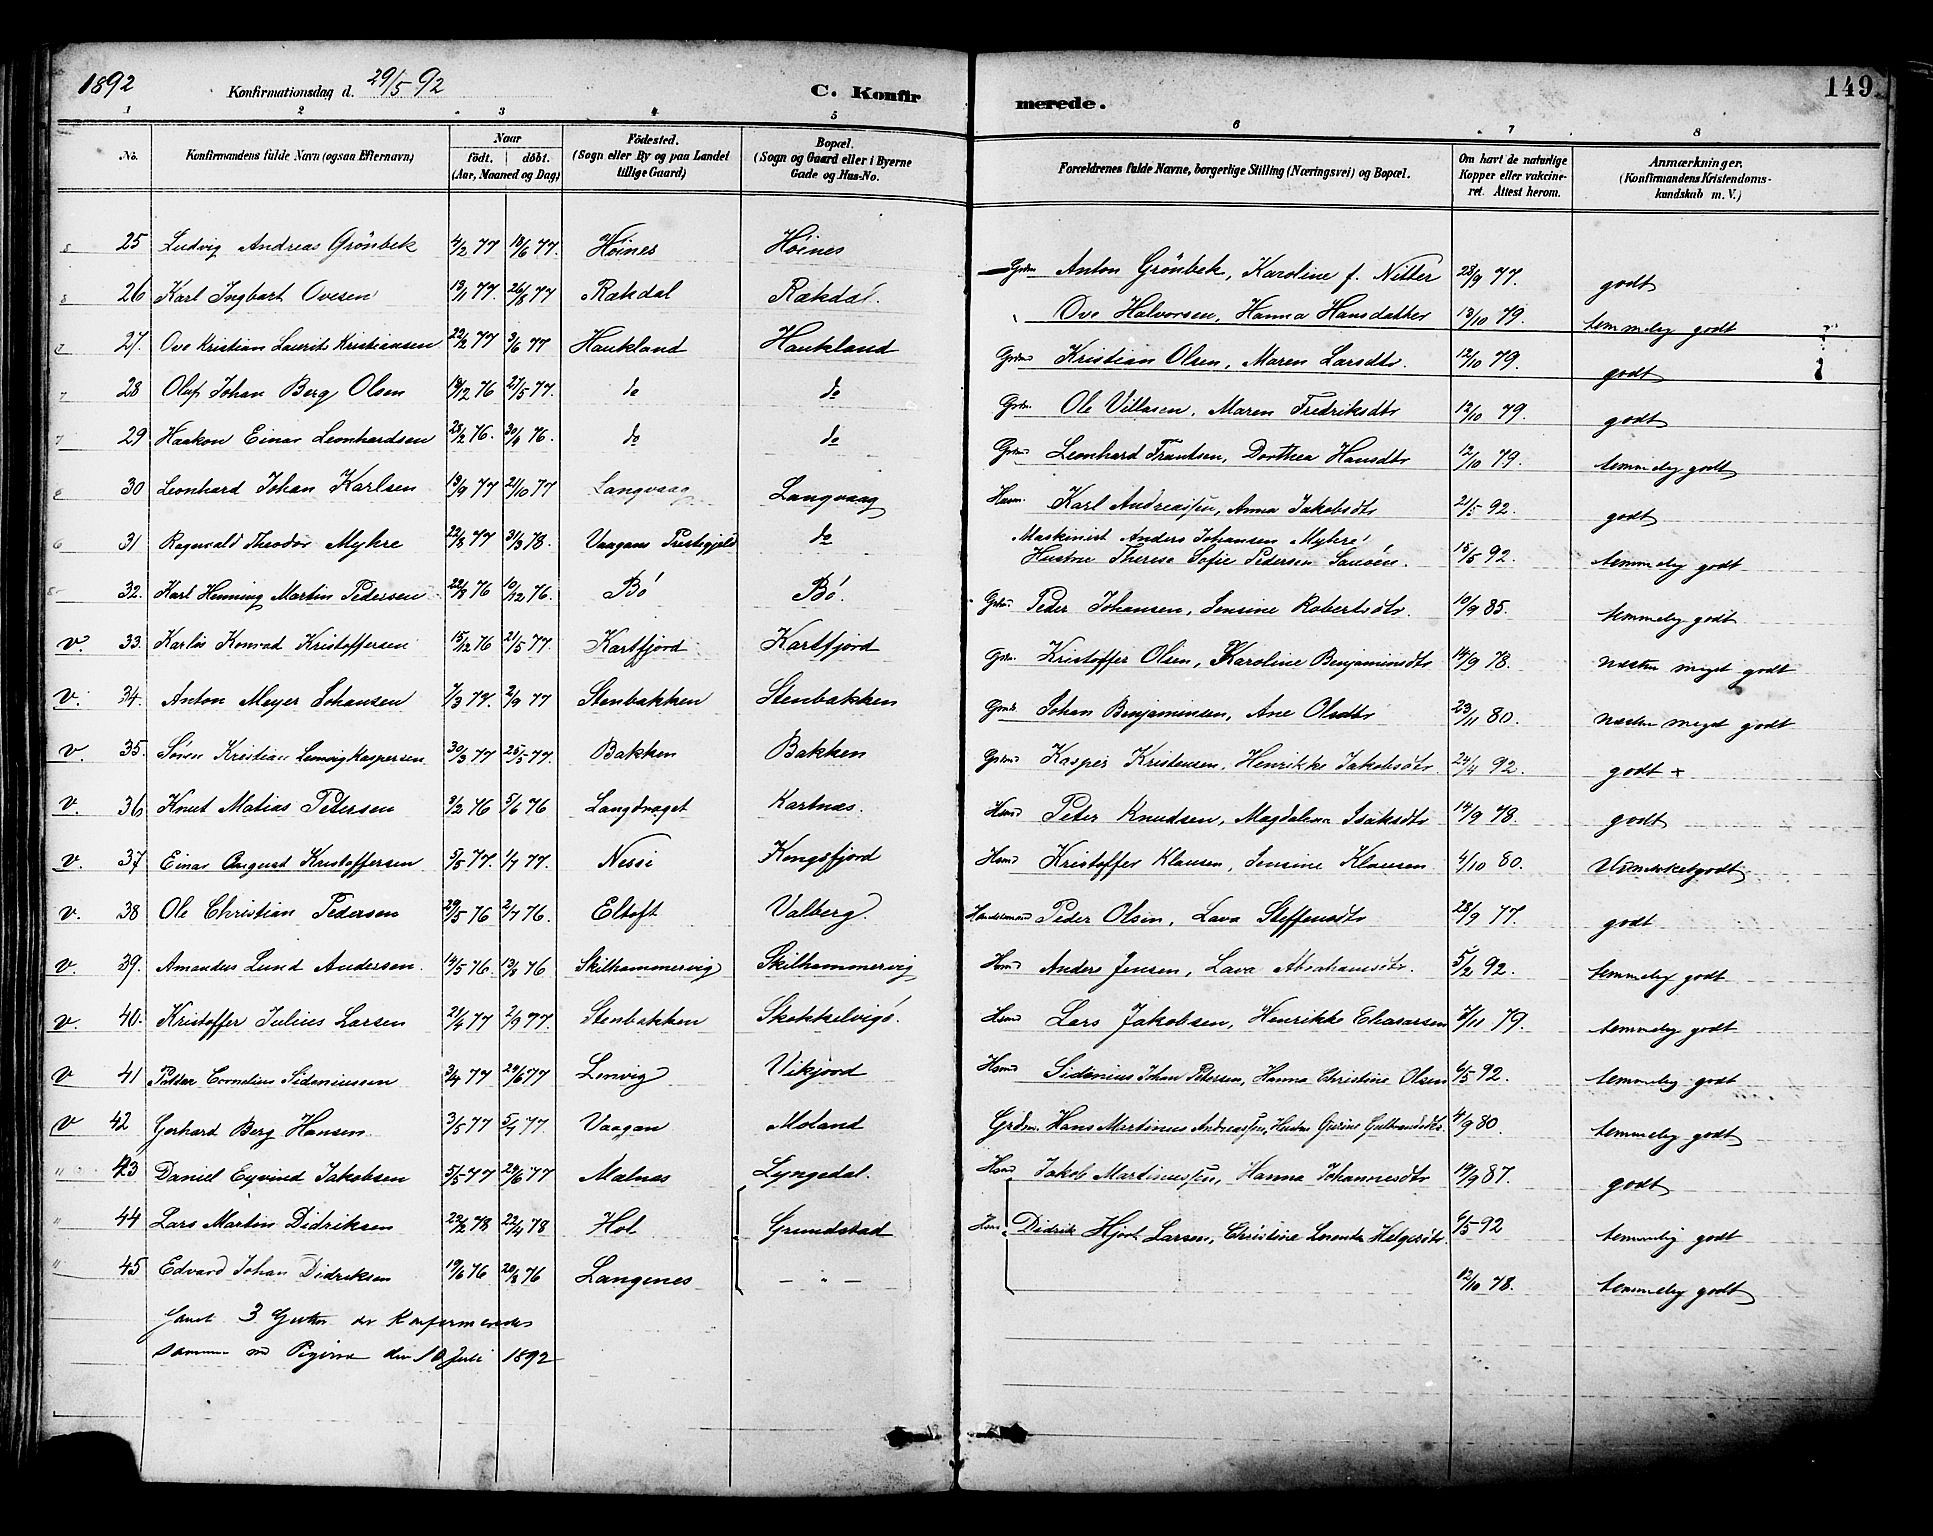 1892 Konfirmationsdag d. 29/5 92 C. Konfirmerede. 149
1 2 3 4 5 6 7 8
No. Konfirmandens fulde Navn (ogsaa Efternavn) Naar født. døbt. (Aar, Maaned og Dag) Fødested. (Sogn eller By og paa Landet tillige Gaard) Bopæl. (Sogn og Gaard eller i Byerne Gade og Hus-No. Forældrenes fulde Navne, borgerlige Stilling (Næringsvei) og Bopæl. Om havt de naturlige Kopper eller vaccineret. Attest herom. Anmærkninger. (Konfirmandens Kristendomskundskab m. V.)
8 25 Ludvig Andreas Grönbek 4/2 77 18/6 77. Höines Höines Grdm Anton Grönbek, Karoline f. Nitter 28/9 77. godt
8 26 Karl Ingbart Ovesen 13/1 77. 26/8 77 Rækdal Rækdal. Ove Halvorsen, Hanna Hansdatter 13/10 79. temmelig godt
7 27. Ove Kristian Laurits Kristiansen 22/2 77 3/6 77 Haukland Haukland Grdm Kristian Olsen, Maren Larsdtr. 12/10 79. godt
7 28 Oluf Johan Berg Olsen 18/12 76 27/5 77. do do Grdm. Ole Villasen, Maren Fredriksdtr 12/10 79. godt
7 29 Haakon Einar Leonhardsen 23/2 76. 30/9 76. do do Grdm Leonhard Frantsen, Dorthea Hansdtr 12/10 79. temmelig godt
6 30 Leonhard Johan Karlsen 13/9 77 21/10 77 Langvaag Langvaag Husm. Karl Andreassen, Anna Jakobsdtr 21/5 92. godt
6 31 Ragnvald Theodor Myhre 22/8 77 31/3 78. Vaagans Prestegjeld do Maskinist Anders Johansen Myhre, Hustru Therese Sofie Pedersen 15/5 92. temmelig godt
8 32. Karl Henning Martin Pedersen 22/9 76 10/12 76. Bö Bö. Grdm. Peder Johansen, Jensine Robertsdtr. 10/9 85. temmelig godt
v. 33. Karlès Konrad Kristoffersen 15/12 76 21/5 77. Kartfjord Kartfjord Grdm. Kristoffer Olsen, Karoline Benjaminsdtr 14/9 78. næsten meget godt
v. 34. Anton Meyer Johansen 7/3 77. 2/9 77 Stenbakken Stenbakken Grdm. Johan Benjaminsen, Ane Olsdtr 23/11 80. næsten meget godt
v. 35. Sören Kristian Lemvig Kaspersen 30/3 77 25/5 77. Bakken Bakken Grdm Kasper Kristensen, Henrikke Jakobsdtr. 24/4 92. godt +
v. 36 Knut Matias Petersen 9/2 76 5/6 76 Langdraget Kartnæs. Husmd Peter Knudsen, Magdalena Isaksdtr 14/9 78. godt
v. 37 Einar August Kristoffersen 5/5 77. 1/7 77. Nessi Kongsfjord Husmd Kristoffer Klausen, Jensine Klausen 4/10 80. Udmerketgodt
v. 38 Ole Christian Pedersen 29/5 76 2/7 76. Eltoft Valberg. Handelsmand Peder Olsen, Lava Steffensdtr 28/9 77. godt
v. 39. Amandus Lund Andersen. 14/5 76. 13/8 76 Skilhammervig Skilhammervig Hsmd Anders Jensen, Lava Abrahamsdtr. 5/2 92. temmelig godt
v. 40. Kristoffer Julius Larsen 21/4 77 2/9 77. Stenbakken Skokkelvigö. Hsmd Lars Jakobsen, Henrikke Eleasarsen /11 79. temmelig godt
v 41 Petter Cornelius Sideniussen 3/4 77 24/6 77 Lenvig Vikjord Hsmd Sidenius Johan Petersen, Hanna Christine Olsen 6/5 92. temmelig godt
v 42 Gerhard Berg Hansen. 3/5 77 5/7 77. Vaagan Moland Grdm. Hans Martinus Andreassen, Hustru Gurine Gulbrandsdtr. 4/9 80. temmelig godt
" 43 Daniel Eyvind Jakobsen 5/5 77 24/6 77 Malnæs Lyngedal. Hsmd Jakob Martinussen, Hanna Johannesdtr 19/9 87. godt
" 44 Lars Martin Didriksen 20/2 78 22/4 78 Hol Grundstad Hsm. Didrik Hjort Larsen, Christine Lorentse Helgesdtr. 6/5 92 temmelig godt
" 45 Edvard Johan Didriksen 19/6 76 20/8 76 Langenes — " — 12/10 78. temmelig godt
samt 3 Gutter der Konfirmeredes
sammen md Pigerne den 10 Juli 1892